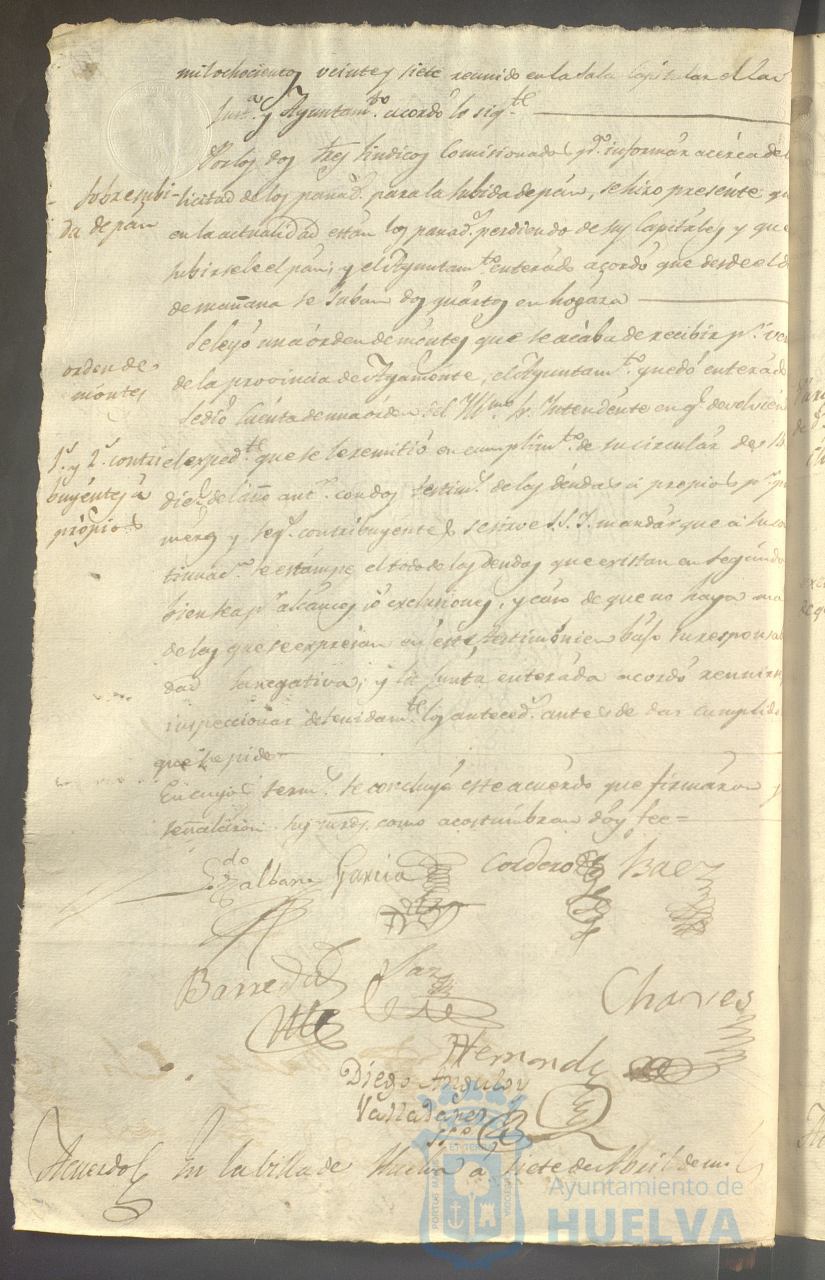 mil ochocientos veinte y siete reunido en la sala Capitular el Ilus
Just.ª y Ayuntam.to acordó lo sig.te
Por los dos Srês. Sindicos Comisionados p.ª informar acérca de
Sobre subi-
da de pán
licitud de los panad.s para la subida de pán, se hizo presénte qu
en la actualidad están los panad.s perdiendo de sus Capitáles y que
subirsele el pán; y el Ayuntam.to enterádo acordó que desde el d
de mañana se suban dos quártos en hogaza
orden de
móntes
Se leyó una órden de móntes que se acába de recibir p.r
de la provincia de Ayamonte, el Ayuntam.to quedó enterádo
1.s y 2.s contri
buyéntes á
própios
Se dió cuénta de una órden del Yllmo. Sr. Intendénte en q.e devolvién
el exped.te que se le remitió en cumplim.to de su circular de
dic.e del año ant.r con dos testim.s de las déudas á propios p.r pri
meros y seg.s contribuyentes se sirve S.S.Y. mandár que á su co
tinuac.n se estámpe el todo de las deudas que existan en segúndos
bien sea p.r alcánces ó exclusiones, y cáso de que no haya mas
de las que se expresan en éste, testimónien bájo su responsabi
dad la negativa; y la Junta enteráda acordó reunirse
inspeccionar detenidam.te los anteced.s antes de dar cumplido
que se pide
En cuyos term.s se concluyó este acuérdo que firmáron y
señaláron sus mrds. como acostúmbran doy fee =
Garcia Cordero Baez
Barreda Saz
Charles
Hernandz
Diego Angulo y
Valladares
Ss.o
Acuerdo En la villa de Huelva á siete de Abril de m
Ayuntamiento de
HUELVA